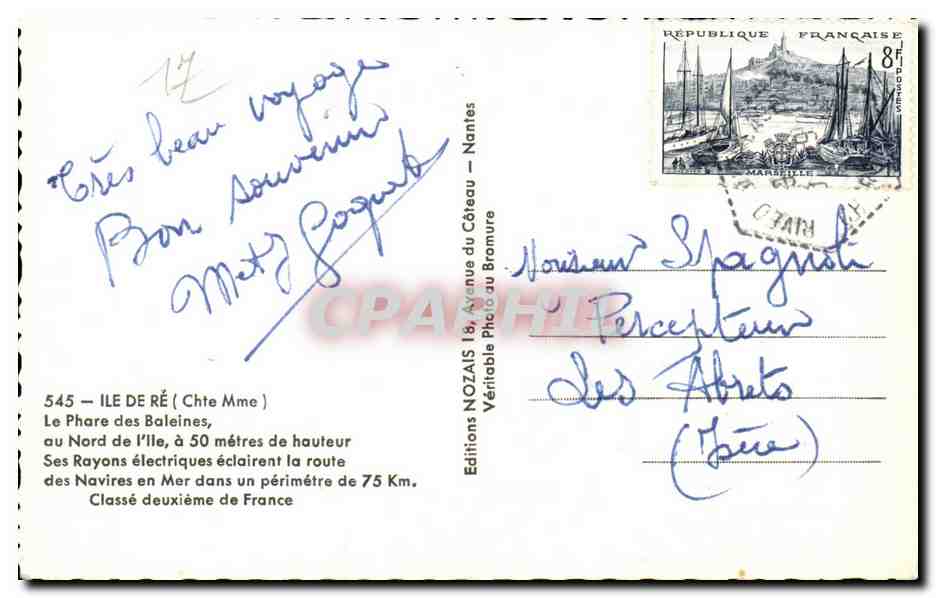 17
Très beau voyage
Bon souvenir
545 — ILE DE RÉ ( Chte Mme )
Le Phare des Baleines,
au Nord de l'Ile, à 50 métres de hauteur
Ses Rayons électriques éclairent la route
des Navires en Mer dans un périmétre de 75 Km.
Classé deuxième de France
Editions NOZAIS 18, Avenue du Côteau — Nantes
Véritable Photo au Bromure
RÉPUBLIQUE FRANÇAISE
8F
POSTES
MARSEILLE
RIVED
Monsieur Spagnoli
Percepteur
Les Abrets
(Isère)
CPARPHIL